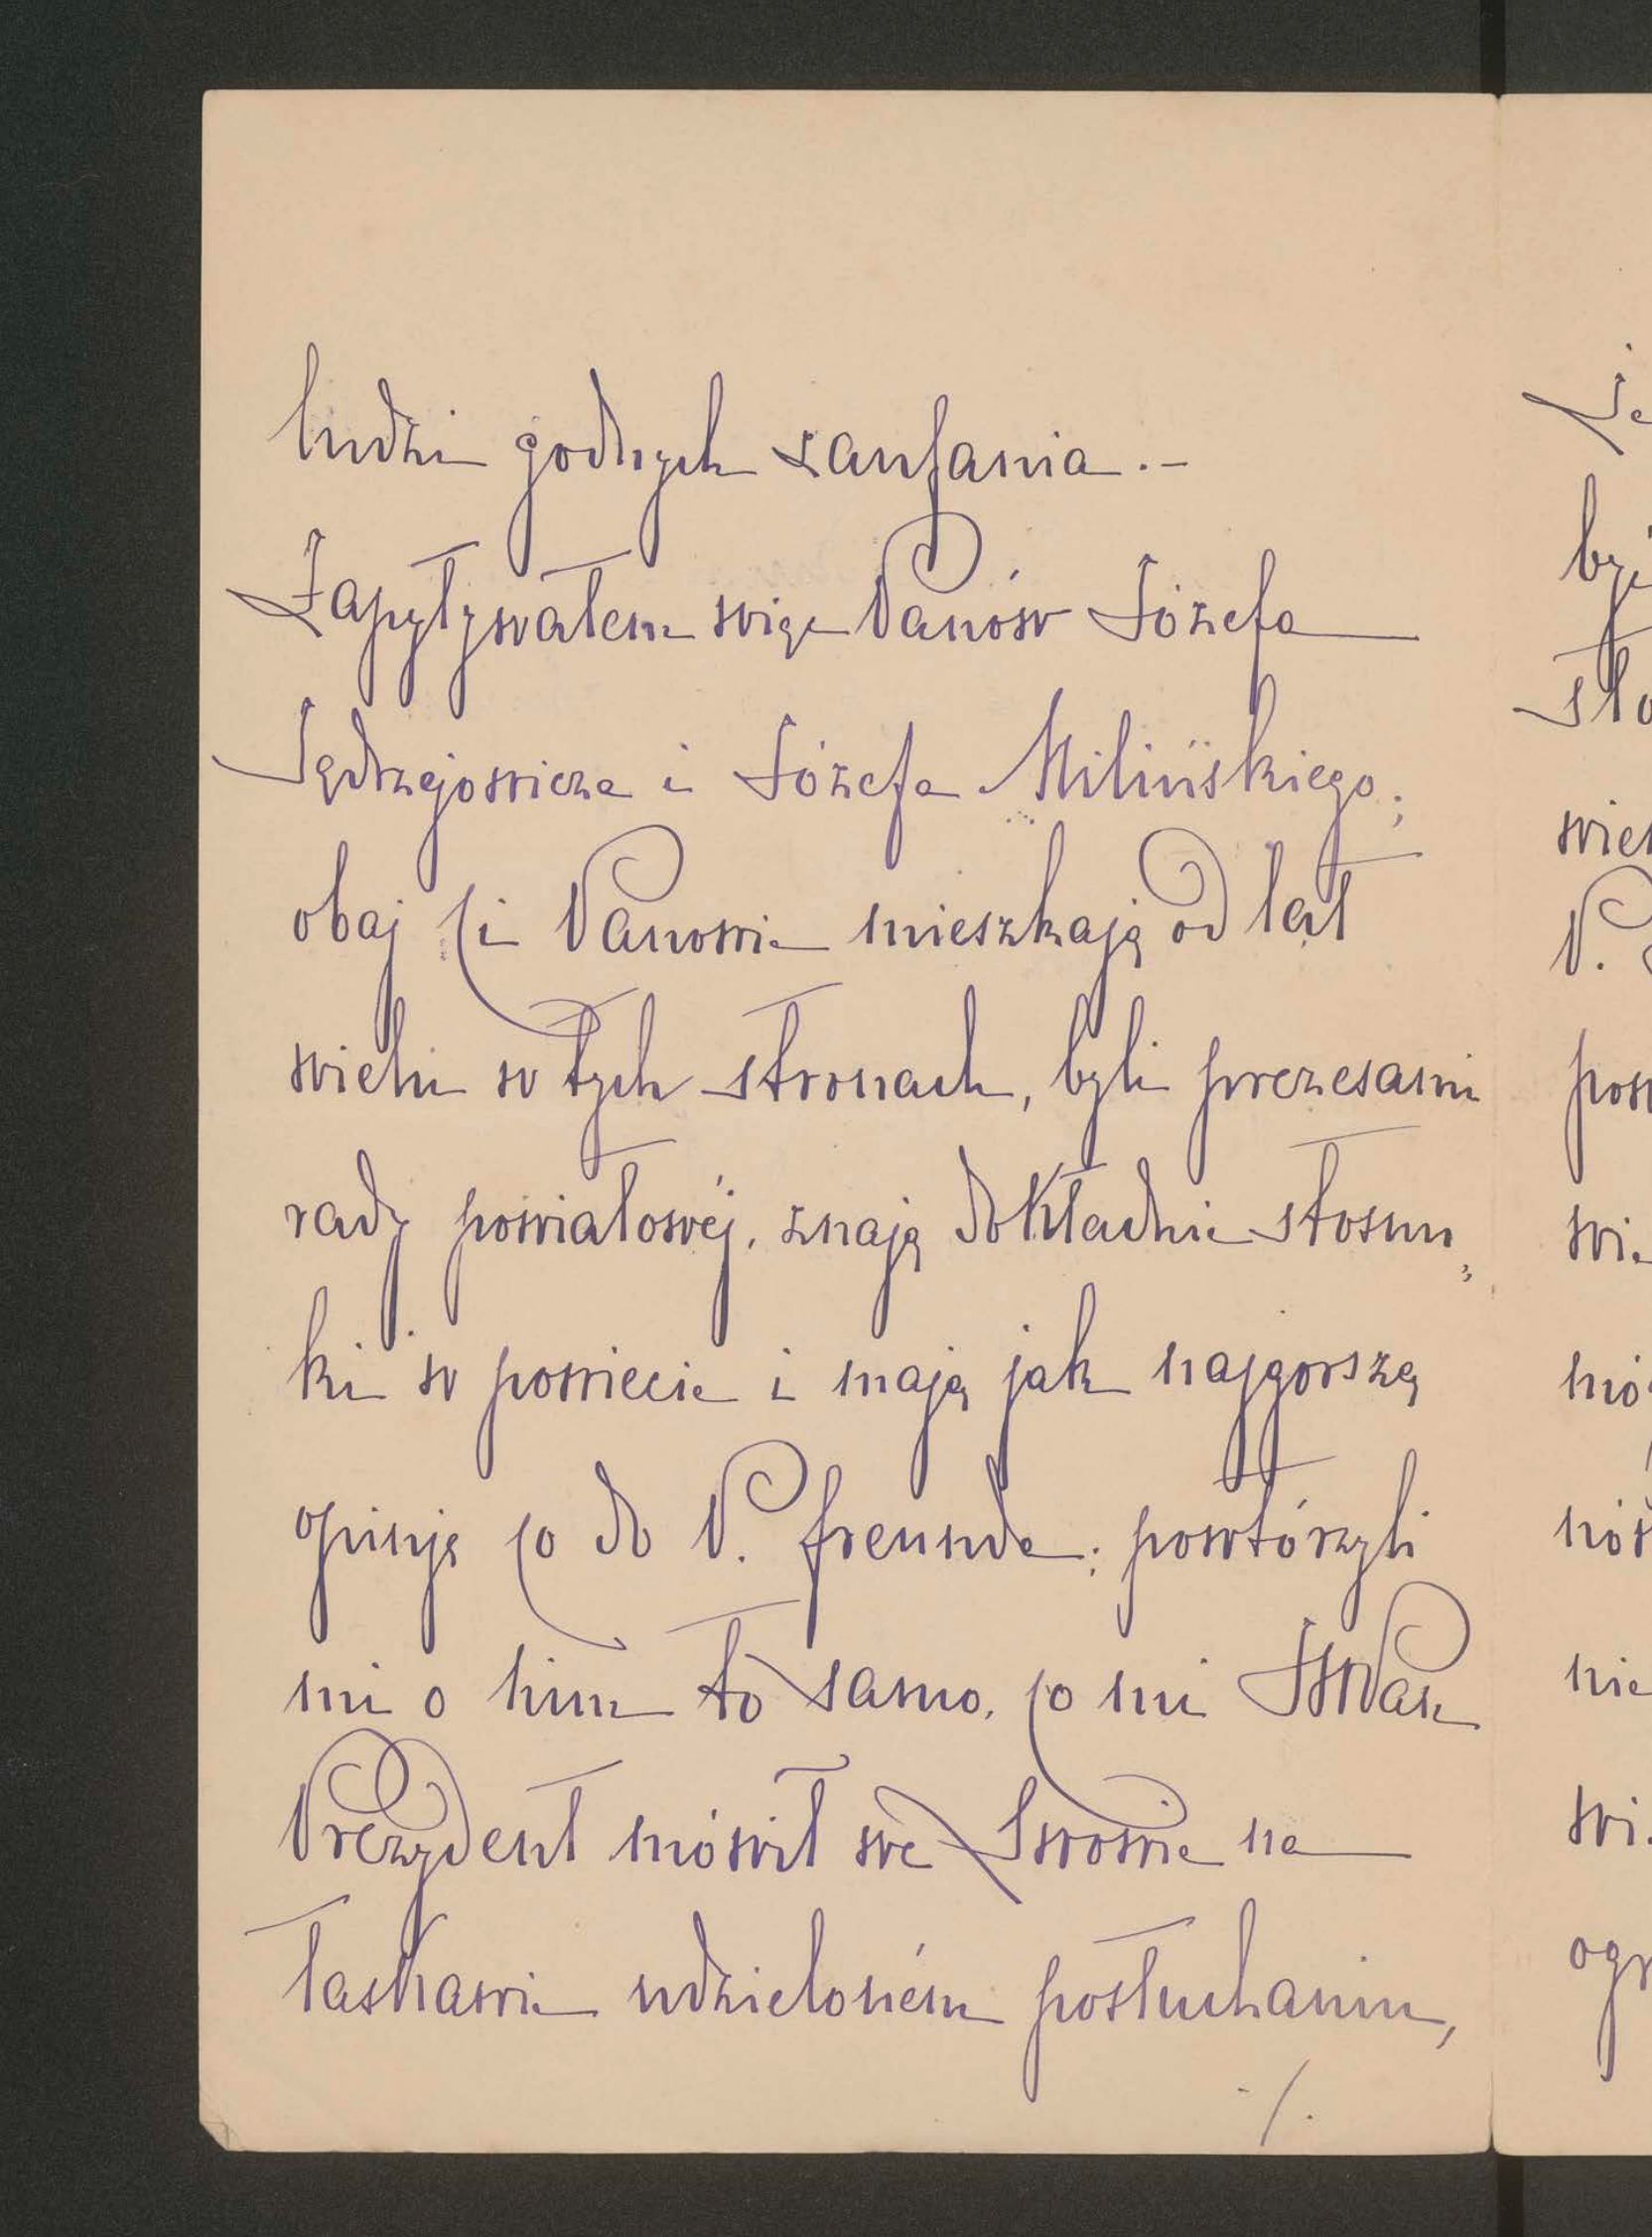 ludzi godnych zaufania.-
Zapytywałem więc Panów Józefa
Jędrzejowicza i Józefa Milińskiego;
obaj ci Panowie mieszkają od lat
wielu w tych stronach, byli prezesami
rady powiatowéj, znają dokładnie stosun„
ki w powiecie i mają jak najgorszą
opinję co do P. Freunda; powtórzyli
mi o nim to samo, co mi JWPan
Prezydent mówił we Lwowie na
łaskawie udzieloném posłuchaniu,
./.